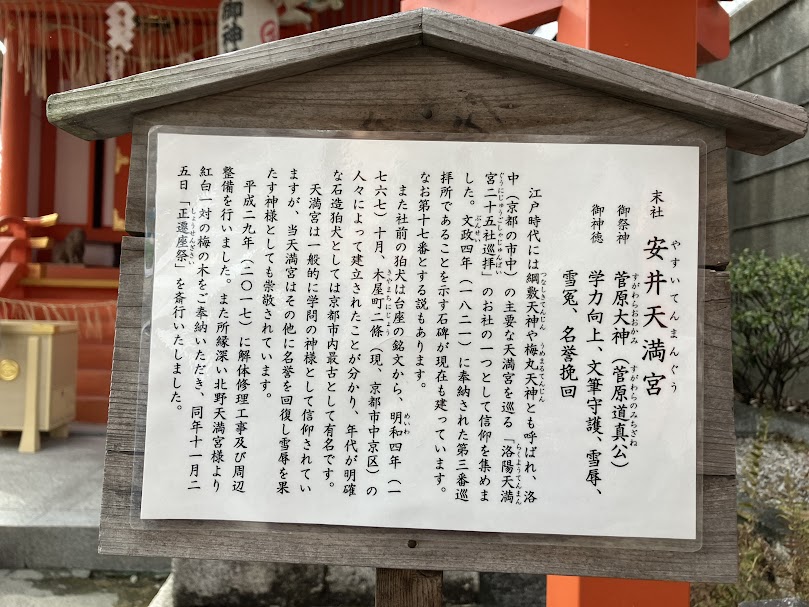 末社 安井天満宮
やすいてんまんぐう
御祭神 菅原大神（菅原道真公）
すがわらおおかみ すがわらのみちざね
御神徳 学力向上、文筆守護、雪辱、
雪冤、名誉挽回
江戸時代には綱敷天神や梅丸天神とも呼ばれ、洛
つなしきてんじん うめまるてんじん
中（京都の市中）の主要な天満宮を巡る「洛陽天満
らくようてんまん
宮二十五社巡拝」のお社の一つとして信仰を集めま
ぐうにじゅうごしゃじゅんぱい
した。文政四年（一八二一）に奉納された第三番巡
ぶんせい
拝所であることを示す石碑が現在も建っています。
なお第十七番とする説もあります。
また社前の狛犬は台座の銘文から、明和四年（一
めいわ
七六七）十月、木屋町二條（現、京都市中京区）の
きやまちにじょう
人々によって建立されたことが分かり、年代が明確
な石造狛犬としては京都市内最古として有名です。
天満宮は一般的に学問の神様として信仰されてい
ますが、当天満宮はその他に名誉を回復し雪辱を果
たす神様としても崇敬されています。
平成二九年（二〇一七）に解体修理工事及び周辺
整備を行いました。また所縁深い北野天満宮様より
紅白一対の梅の木をご奉納いただき、同年十一月二
五日「正遷座祭」を斎行いたしました。
しょうせんざさい
御神